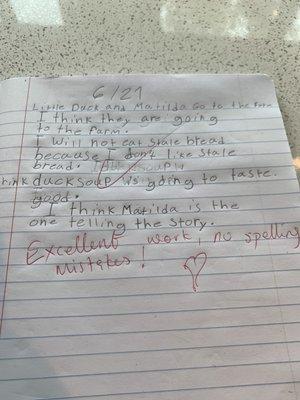 6/21
Little Duck and Matilda Go to the
I think they are going
to the farm.
I will not eat stale bread
because I don't like stale
bread.
think duck soup is going to taste.
good.
I think Matilda is the
one telling the story.
Excellent work, no spelling
mistakes!